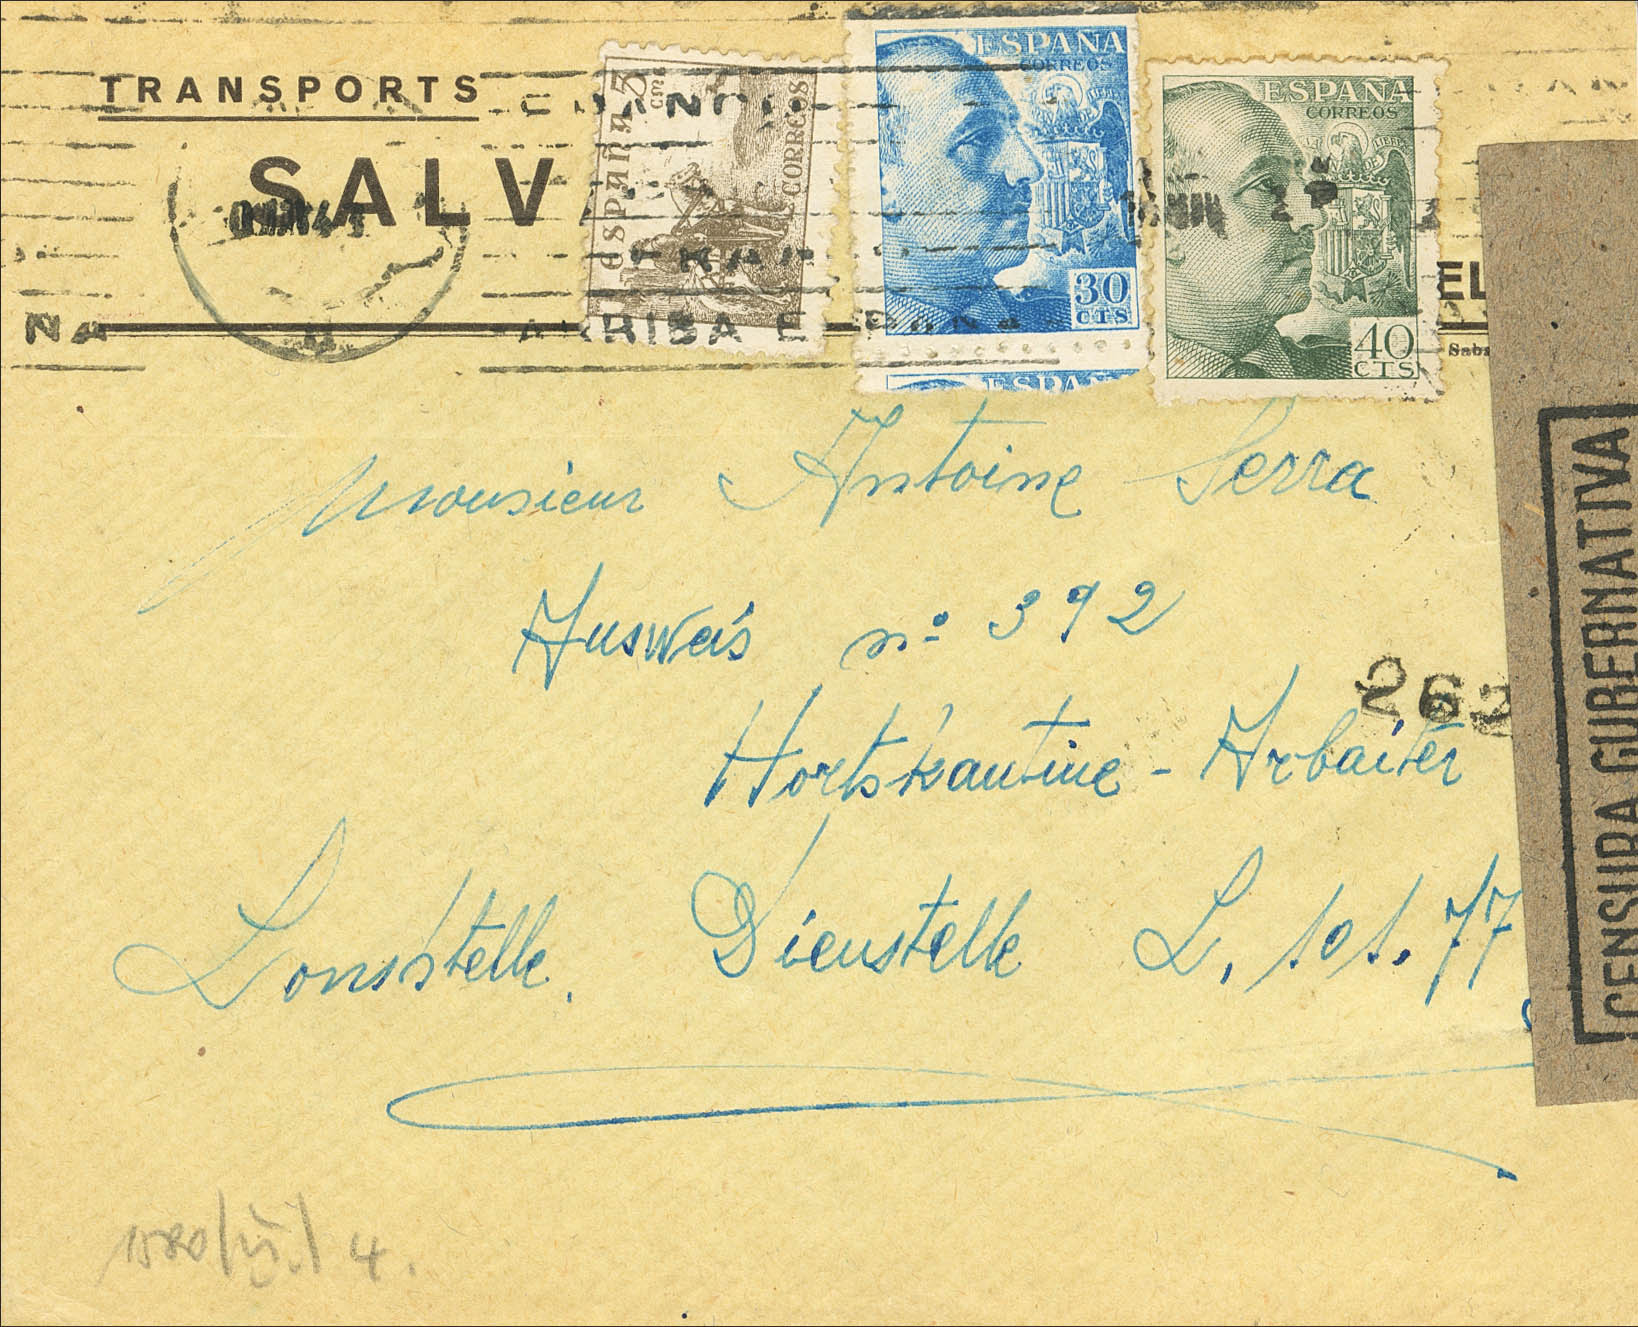 TRANSPORTS
SALV
NA
ARRIBA ESPAÑA
ESPAÑA 5 cms CORREOS
ESPAÑA
CORREOS
30
CTS
ESPAÑA
ESPAÑA
CORREOS
40
CTS
EL
Monsieur Antoine Serra
Ausweis nº 392
262
Hortskantine - Arbaiter
Lonsstelle. Dienstelle L. 101.77
CENSURA GUBERNATIVA
4.